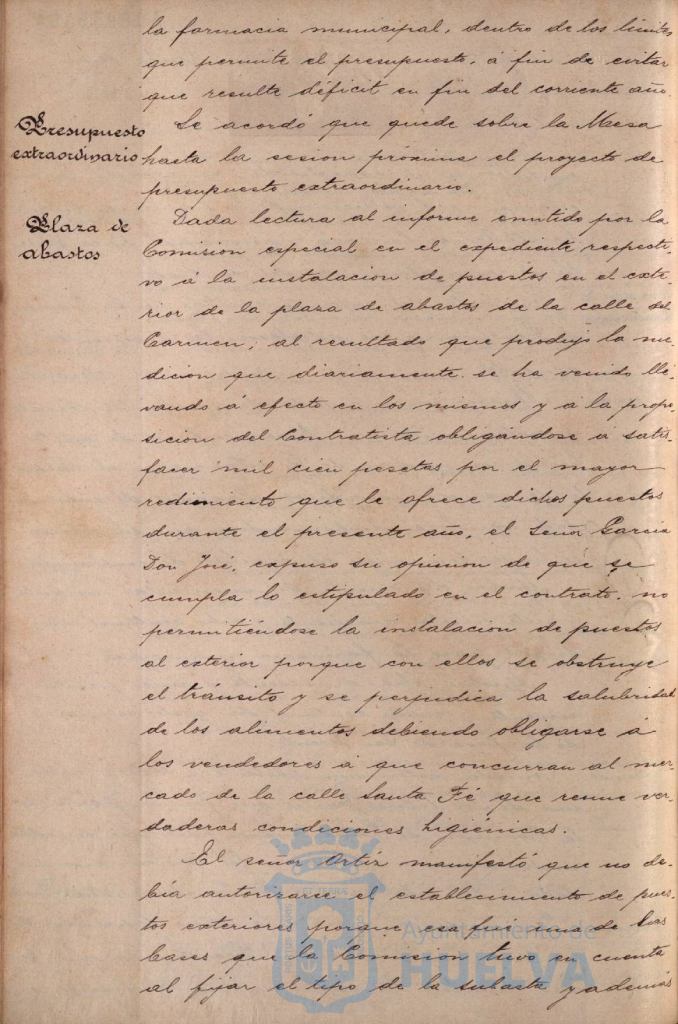 la farmacia municipal, dentro de los límites
que permite el presupuesto, á fin de evitar
que resulte déficit en fin del corriente año.
Presupuesto
extraordinario
Se acordó que quede sobre la Mesa
hasta la sesion próxima el proyecto de
presupuesto extraordinario.
Plaza de
abastos
Dada lectura al informe emitido por la
Comision especial en el expediente respecti-
vo á la instalacion de puestos en el exte-
rior de la plaza de abastos de la calle del
Carmen; al resultado que produjo la me-
dicion que diariamente se ha venido lle-
vando á efecto en los mismos y á la propo-
sicion del Contratista obligándose á satis-
facer mil cien pesetas por el mayor
redimiento que le ofrece dichos puestos
durante el presente año, el Señor García
Don José, expuso su opinion de que se
cumpla lo estipulado en el contrato, no
permitiéndose la instalacion de puestos
al exterior porque con ellos se obstruye
el tránsito y se perjudica la salubridad
de los alimentos debiendo obligarse á
los vendedores á que concurran al mer-
cado de la calle Santa Fé que reune ver-
daderas condiciones higiénicas.
El señor Ortiz manifestó que no de-
bía autorizarse el establecimiento de pues-
tos exteriores porque esa fué una de las
bases que la Comision tuvo en cuenta
al fijar el tipo de la subasta y además
Ayuntamiento de
HUELVA